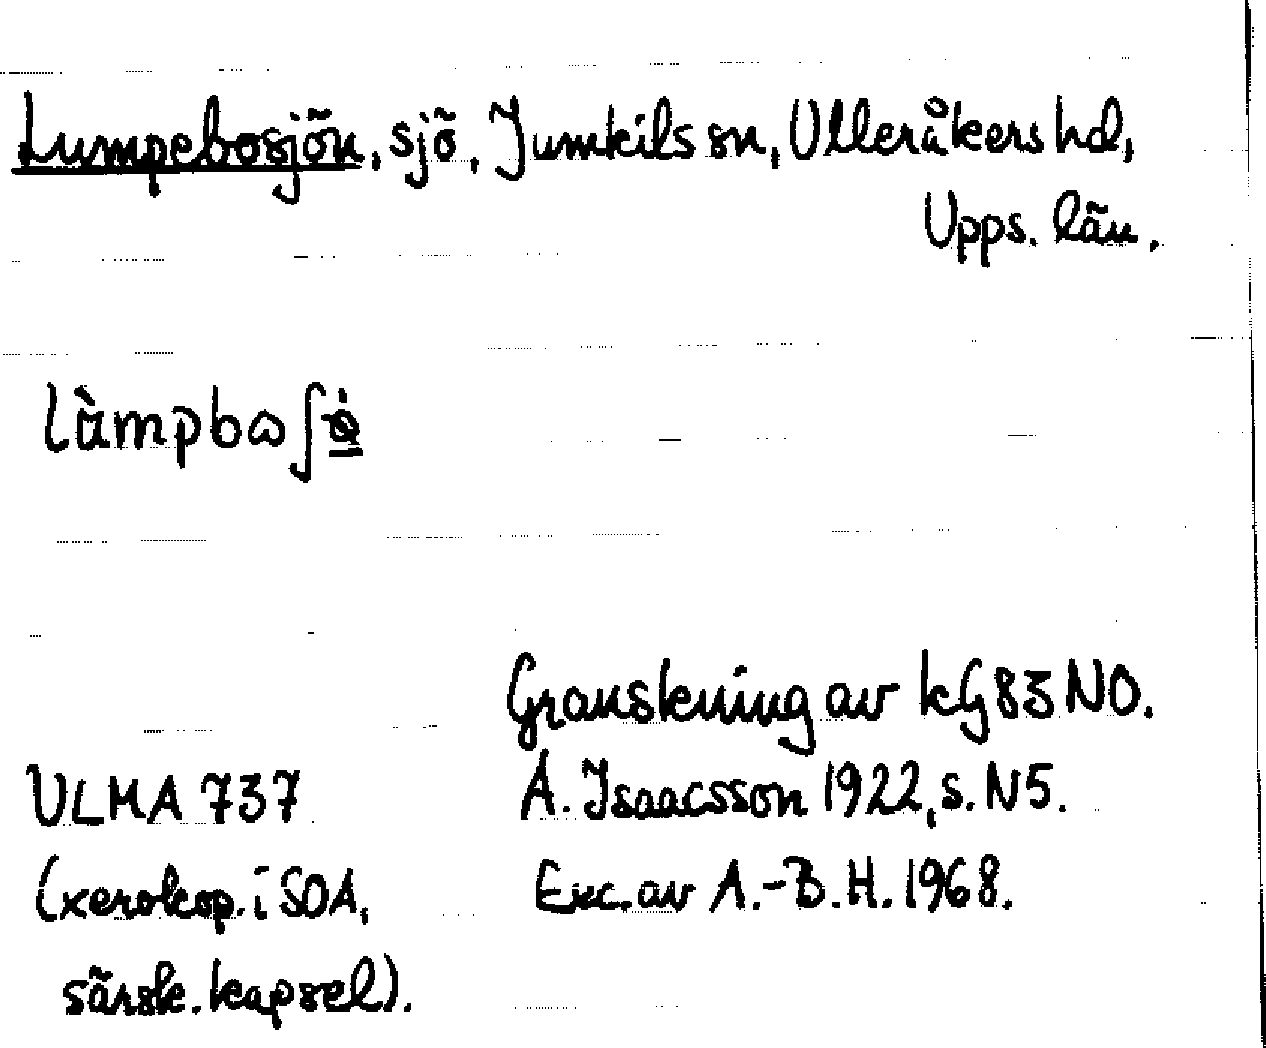 Lumpebosjön, sjö, Jumkils sn, Ulleråkers hd,
Upps. län.
Granskning av kG 83 NO.
ULMA 737
A. Isaacsson 1922, s. N5.
(xerokop. i SOA,
Exc. av A.-B. H. 1968.
särsk. kapsel).